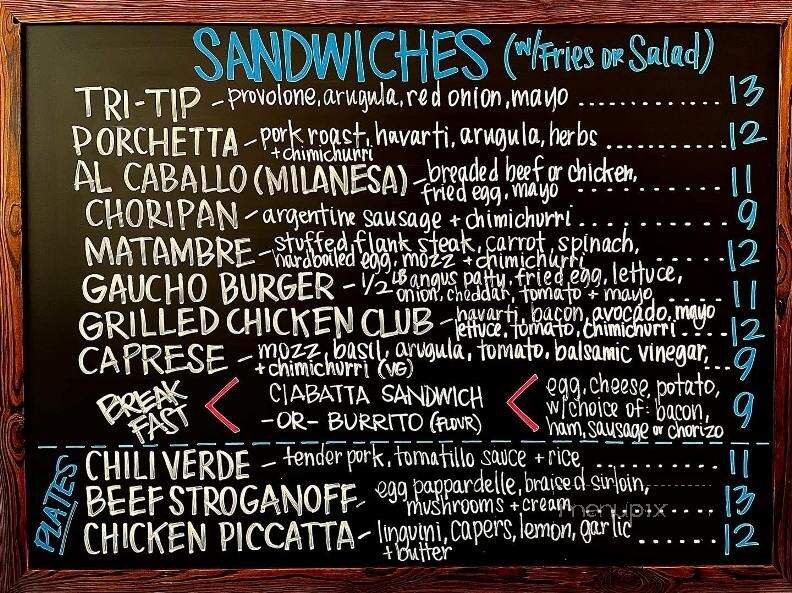 SANDWICHES (w/Fries OR Salad)
TRI-TIP - provolone, arugula, red onion, mayo .............. 13
PORCHETTA - pork roast, havarti, arugula, herbs ............ 12
+ chimichurri
AL CABALLO (MILANESA) - breaded beef or chicken,
fried egg, mayo ............ 11
CHORIPAN - argentine sausage + chimichurri ............ 9
MATAMBRE - stuffed flank steak, carrot, spinach,
hardboiled egg, mozz + chimichurri ............ 12
GAUCHO BURGER - 1/2 LB angus patty, fried egg, lettuce,
onion, cheddar, tomato + mayo ...... 11
GRILLED CHICKEN CLUB - havarti, bacon, avocado, mayo
lettuce, tomato, chimichurri .... 12
CAPRESE - mozz, basil, arugula, tomato, balsamic vinegar, ... 9
+ chimichurri (VG)
BREAK
FAST
< CIABATTA SANDWICH
-OR- BURRITO (FLOUR)
< egg, cheese, potato,
w/ choice of: bacon,
ham, sausage or chorizo
9
PLATES
CHILI VERDE - tender pork, tomatillo sauce + rice ............ 11
BEEF STROGANOFF - egg pappardelle, braised sirloin,
mushrooms + cream ............ 13
CHICKEN PICCATTA - linguini, capers, lemon, garlic ....... 12
+ butter
menupix